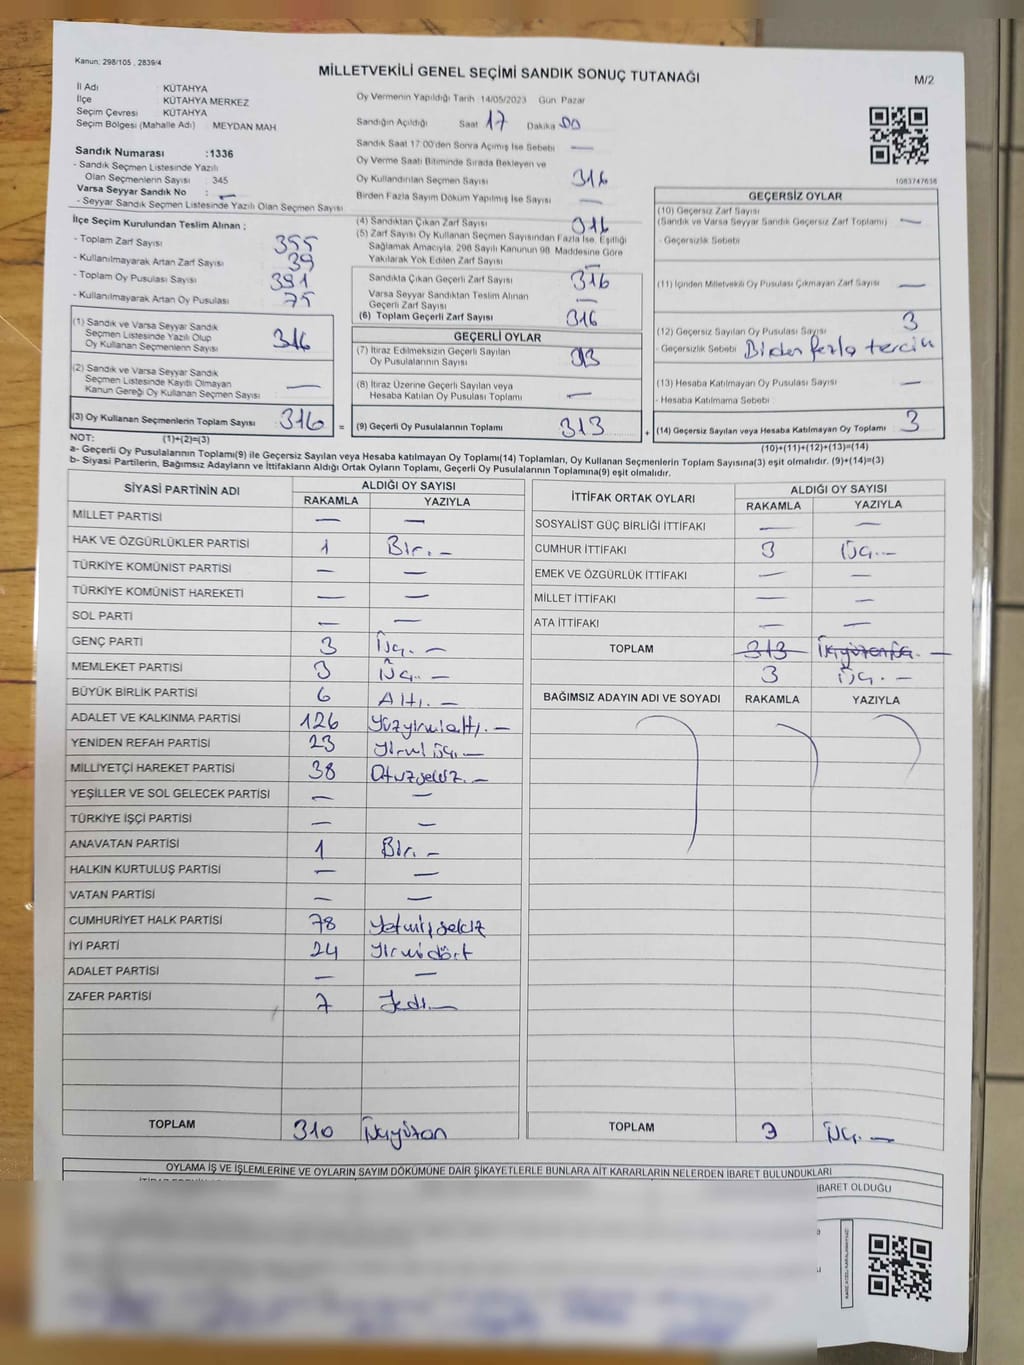 Kanun: 298/105 , 2839/4
MİLLETVEKİLİ GENEL SEÇİMİ SANDIK SONUÇ TUTANAĞI
M/2
İl Adı : KÜTAHYA
İlçe : KÜTAHYA MERKEZ
Seçim Çevresi : KÜTAHYA
Seçim Bölgesi (Mahalle Adı) : MEYDAN MAH
Sandık Numarası :1336
- Sandık Seçmen Listesinde Yazılı
Olan Seçmenlerin Sayısı : 345
Varsa Seyyar Sandık No : —
- Seyyar Sandık Seçmen Listesinde Yazılı Olan Seçmen Sayısı
Oy Vermenin Yapıldığı Tarih 14/05/2023 Gün Pazar
Sandığın Açıldığı Saat 17 Dakika 00
Sandık Saat 17:00'den Sonra Açımış İse Sebebi —
Oy Verme Saati Bitiminde Sırada Bekleyen ve
Oy Kullandırılan Seçmen Sayısı 316
Birden Fazla Sayım Döküm Yapılmış İse Sayısı —
1083747636
İlçe Seçim Kurulundan Teslim Alınan :
- Toplam Zarf Sayısı 355
- Kullanılmayarak Artan Zarf Sayısı 39
- Toplam Oy Pusulası Sayısı 391
- Kullanılmayarak Artan Oy Pusulası 75
(1) Sandık ve Varsa Seyyar Sandık
Seçmen Listesinde Yazılı Olup
Oy Kullanan Seçmenlerin Sayısı 316
(2) Sandık ve Varsa Seyyar Sandık
Seçmen Listesinde Kayıtlı Olmayan
Kanun Gereği Oy Kullanan Seçmen Sayısı : —
(3) Oy Kullanan Seçmenlerin Toplam Sayısı 316 =
(4) Sandıktan Çıkan Zarf Sayısı 316
(5) Zarf Sayısı Oy Kullanan Seçmen Sayısından Fazla İse, Eşitliği
Sağlamak Amacıyla, 298 Sayılı Kanunun 98. Maddesine Göre
Yakılarak Yok Edilen Zarf Sayısı
Sandıkta Çıkan Geçerli Zarf Sayısı 316
Varsa Seyyar Sandıktan Teslim Alınan
Geçerli Zarf Sayısı —
(6) Toplam Geçerli Zarf Sayısı 316
GEÇERLİ OYLAR
(7) İtiraz Edilmeksizin Geçerli Sayılan
Oy Pusulalarının Sayısı 313
(8) İtiraz Üzerine Geçerli Sayılan veya
Hesaba Katılan Oy Pusulası Toplamı —
(9) Geçerli Oy Pusulalarının Toplamı 313 +
GEÇERSİZ OYLAR
(10) Geçersiz Zarf Sayısı
(Sandık ve Varsa Seyyar Sandık Geçersiz Zarf Toplamı) —
- Geçersizlik Sebebi
(11) İçinden Milletvekili Oy Pusulası Çıkmayan Zarf Sayısı —
(12) Geçersiz Sayılan Oy Pusulası Sayısı 3
- Geçersizlik Sebebi Birden fazla tercih
(13) Hesaba Katılmayan Oy Pusulası Sayısı —
- Hesaba Katılmama Sebebi
(14) Geçersiz Sayılan veya Hesaba Katılmayan Oy Toplamı 3
NOT: (1)+(2)=(3)
(10)+(11)+(12)+(13)=(14)
a- Geçerli Oy Pusulalarının Toplamı(9) ile Geçersiz Sayılan veya Hesaba katılmayan Oy Toplamı(14) Toplamları, Oy Kullanan Seçmenlerin Toplam Sayısına(3) eşit olmalıdır. (9)+(14)=(3)
b- Siyasi Partilerin, Bağımsız Adayların ve İttifakların Aldığı Ortak Oyların Toplamı, Geçerli Oy Pusulalarının Toplamına(9) eşit olmalıdır.
SİYASİ PARTİNİN ADI ALDIĞI OY SAYISI
RAKAMLA YAZIYLA
MİLLET PARTİSİ — —
HAK VE ÖZGÜRLÜKLER PARTİSİ 1 Bir. —
TÜRKİYE KOMÜNİST PARTİSİ — —
TÜRKİYE KOMÜNİST HAREKETİ — —
SOL PARTİ — —
GENÇ PARTİ 3 Üç. —
MEMLEKET PARTİSİ 3 Üç. —
BÜYÜK BİRLİK PARTİSİ 6 Altı. —
ADALET VE KALKINMA PARTİSİ 126 Yüzyirmialtı. —
YENİDEN REFAH PARTİSİ 23 Yirmi üç. —
MİLLİYETÇİ HAREKET PARTİSİ 38 Otuzsekiz. —
YEŞİLLER VE SOL GELECEK PARTİSİ — —
TÜRKİYE İŞÇİ PARTİSİ — —
ANAVATAN PARTİSİ 1 Bir. —
HALKIN KURTULUŞ PARTİSİ — —
VATAN PARTİSİ — —
CUMHURİYET HALK PARTİSİ 78 Yetmişsekiz
İYİ PARTİ 24 Yirmidört
ADALET PARTİSİ — —
ZAFER PARTİSİ 7 Yedi —
TOPLAM 310 Üçyüzon
İTTİFAK ORTAK OYLARI ALDIĞI OY SAYISI
RAKAMLA YAZIYLA
SOSYALİST GÜÇ BİRLİĞİ İTTİFAKI — —
CUMHUR İTTİFAKI 3 Üç. —
EMEK VE ÖZGÜRLÜK İTTİFAKI — —
MİLLET İTTİFAKI — —
ATA İTTİFAKI — —
TOPLAM 313
3 Üç. —
BAĞIMSIZ ADAYIN ADI VE SOYADI RAKAMLA YAZIYLA
TOPLAM 3 Üç. —
OYLAMA İŞ VE İŞLEMLERİNE VE OYLARIN SAYIM DÖKÜMÜNE DAİR ŞİKAYETLERLE BUNLARA AİT KARARLARIN NELERDEN İBARET BULUNDUKLARI
İBARET OLDUĞU